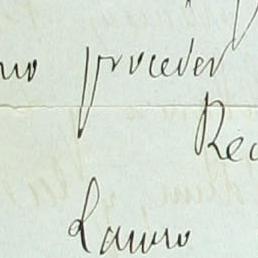 no proceder
Rec
Lauro